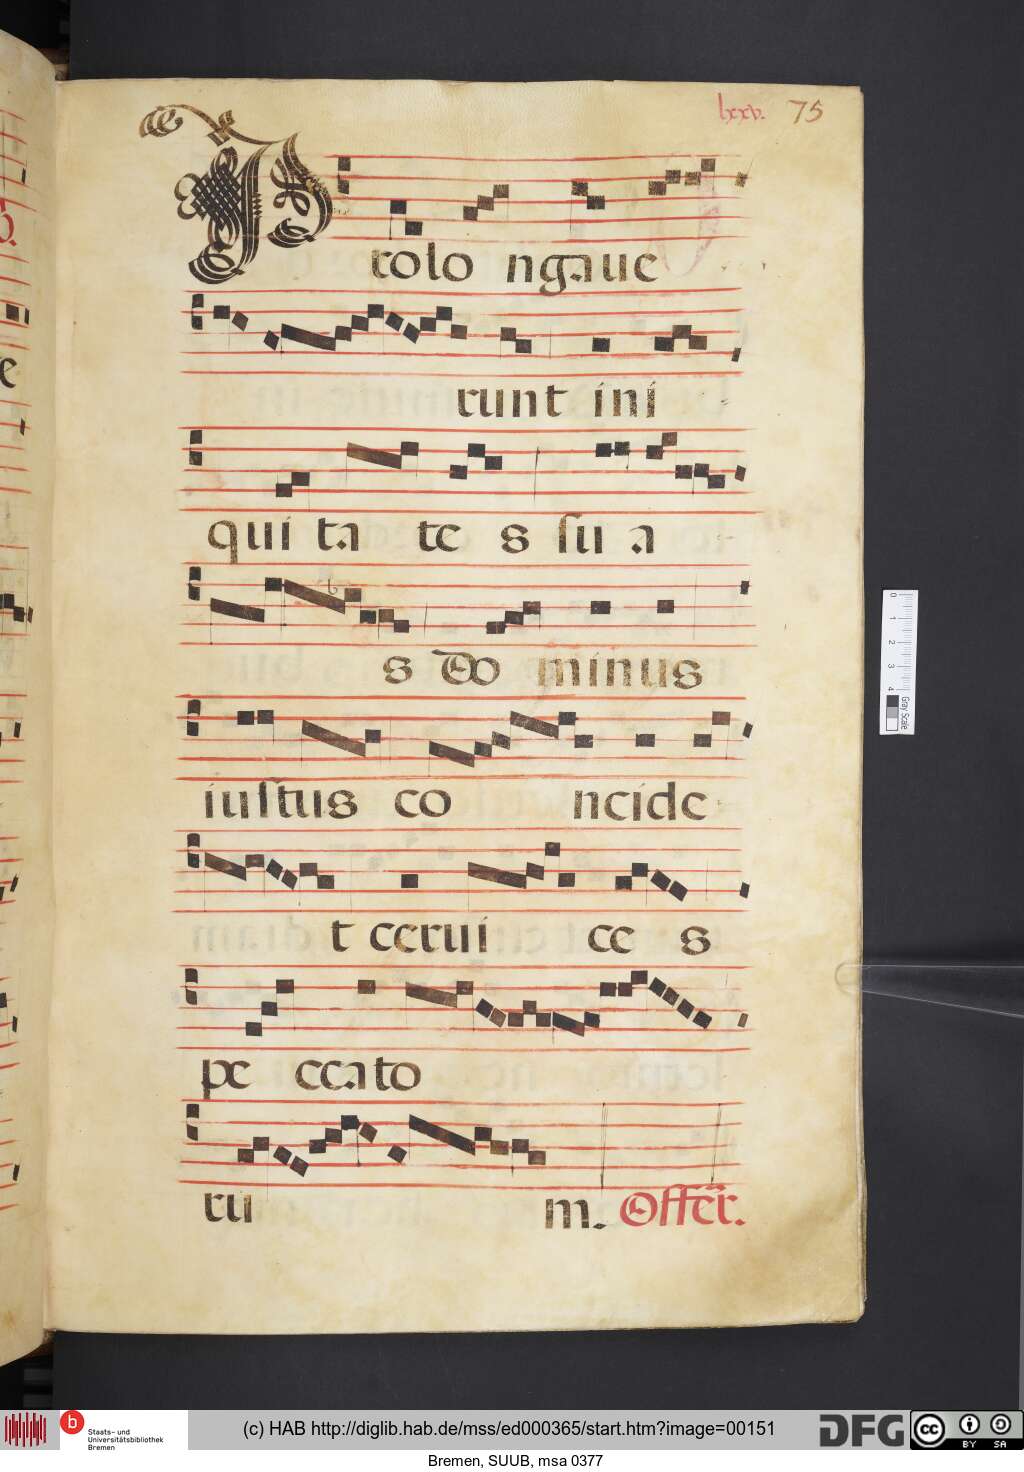 lxxv. 75
Prolo ngaue
runt ini
qui ta te s su a
s do minus
iustus co ncide
t cerui ce s
pe ccato
ru m. Offer.
0 1 2 3 4
Gray Scale
b Staats- und Universitätsbibliothek Bremen
(c) HAB http://diglib.hab.de/mss/ed000365/start.htm?image=00151
DFG
cc BY SA
Bremen, SUUB, msa 0377